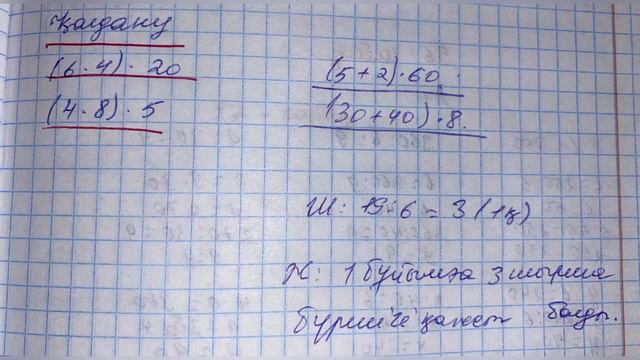 Қолдану
(6 · 4) · 20
(4 · 8) · 5
(5 + 2) · 60
(30 + 40) · 8.
Ш: 19 : 6 = 3 (1қ)
Ж: 1 бұйымға 3 шырша
бүршігі қажет болды.